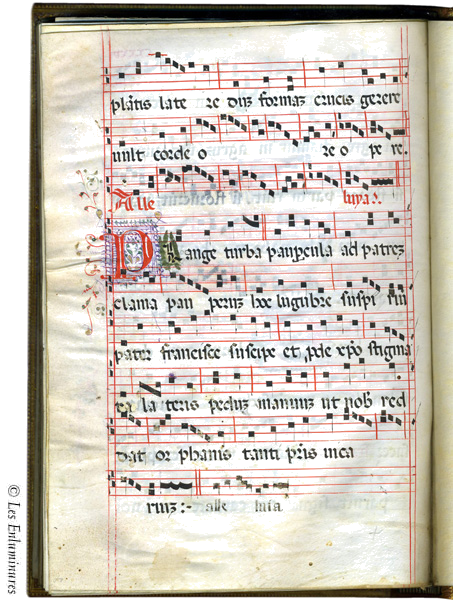 plantis late re dius formam crucis gerere
vult corde o re o pe re.
Alle luya:.
Plange turba paupercula ad patrez
clama pau perum hoc lugubre suspi rium
pater francisce suscipe et pde xpo stigma
ta la teris pedum manuum ut nob red
dat or phanis tanti pris vica
rium :- alle luia
© Les Enluminures